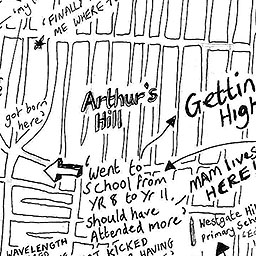 'FINALLY
ME WHERE T
Arthur's
Hill
Gettin
High
got born
here?
'Went to
school from
YR 8 to Yr 11,
should have
Attended more'
MAM lives
HERE!
Westgate Hil
Primary Schoo
WAVELENGTH
GOT KICKED
HAVING